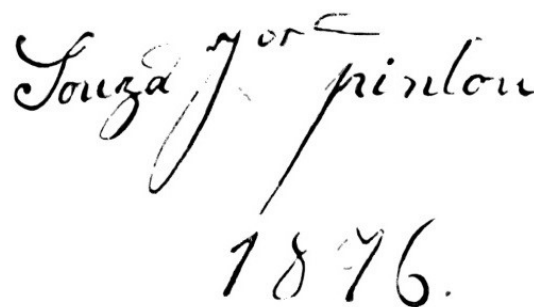 Souza Jor pinlou
1876.